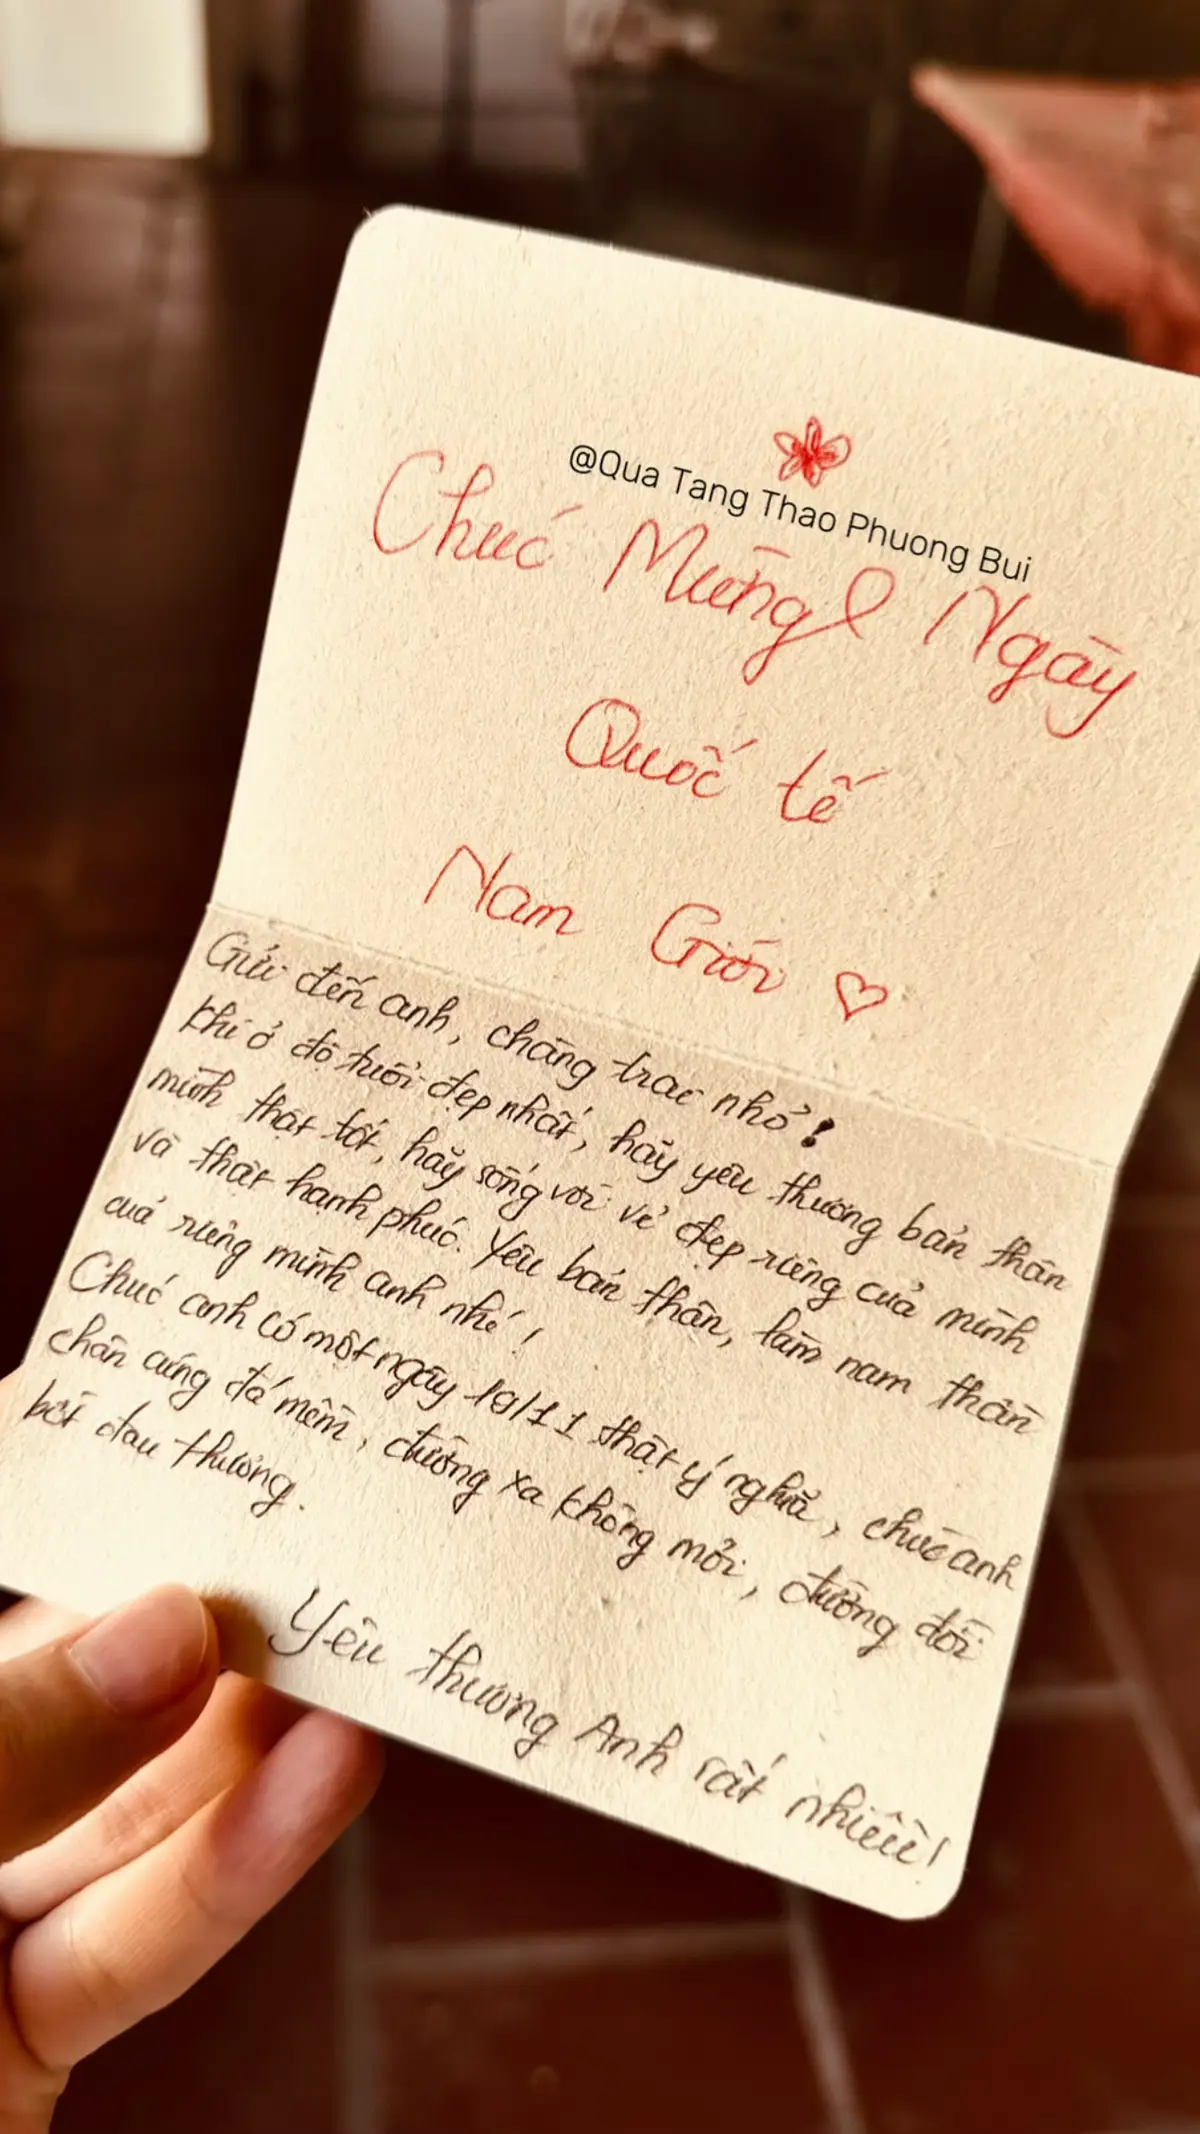 @Qua Tang Thao Phuong Bui
Chúc Mừng Ngày
Quốc tế
Nam Giới
Gửi đến anh, chàng trai nhỏ!
Khi ở độ tuổi đẹp nhất, hãy yêu thương bản thân
mình thật tốt, hãy sống với vẻ đẹp riêng của mình
và thật hạnh phúc. Yêu bản thân, làm nam thần
của riêng mình anh nhé!
Chúc anh có một ngày 19/11 thật ý nghĩa, chúc anh
chân cứng đá mềm, đường xa không mỏi, đường đời
bớt đau thương.
Yêu thương Anh rất nhiều!